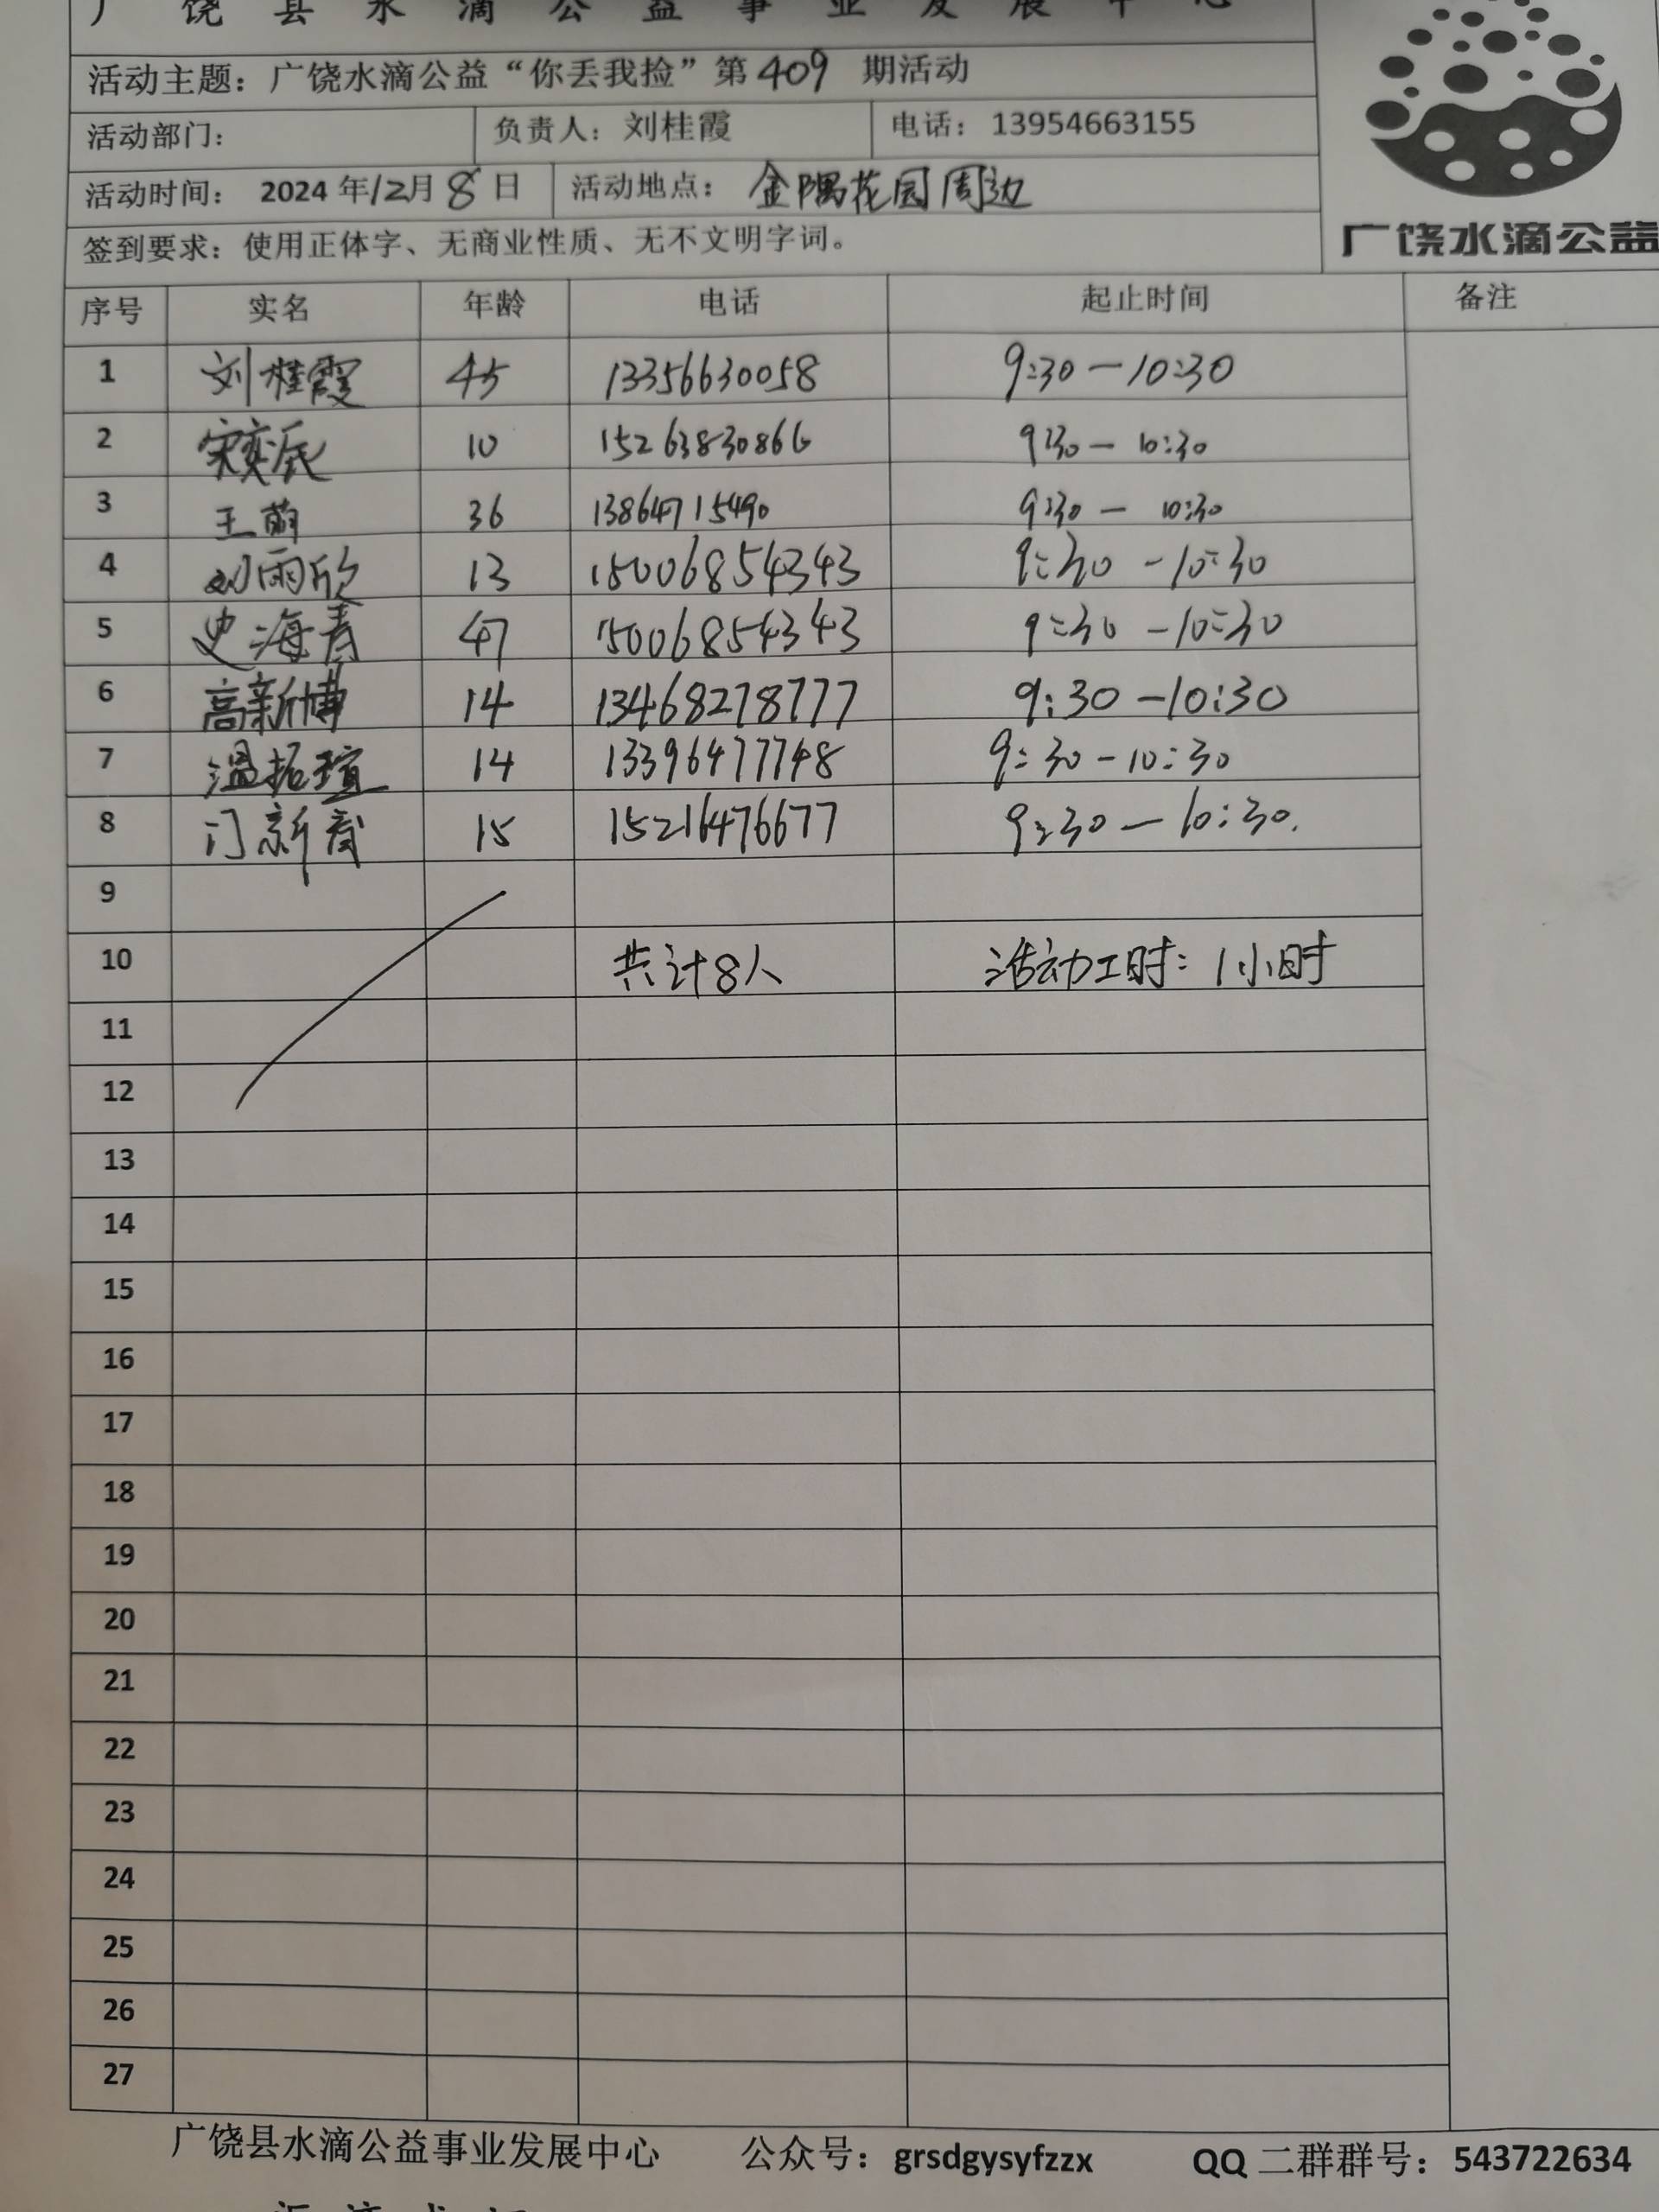 广饶县水滴公益事业发展中心
活动主题：广饶水滴公益“你丢我捡”第409 期活动
活动部门： 负责人：刘桂霞 电话：13954663155
活动时间：2024年12月8日 活动地点：金隅花园周边
签到要求：使用正体字、无商业性质、无不文明字词。
广饶水滴公益
序号 实名 年龄 电话 起止时间 备注
1 刘桂霞 45 13356630058 9:30－10:30
2 宋奕辰 10 15263830866 9:30－10:30
3 王萌 36 13864715490 9:30－10:30
4 刘雨欣 13 15006854343 9:30－10:30
5 史海青 47 15006854343 9:30－10:30
6 高新博 14 13468278777 9:30－10:30
7 温拓瑄 14 13396477748 9:30－10:30
8 门新 15 15216476677 9:30－10:30.
9
10 共计8人 活动工时：1小时
11
12
13
14
15
16
17
18
19
20
21
22
23
24
25
26
27
广饶县水滴公益事业发展中心 公众号：grsdgysyfzzx QQ二群群号：543722634